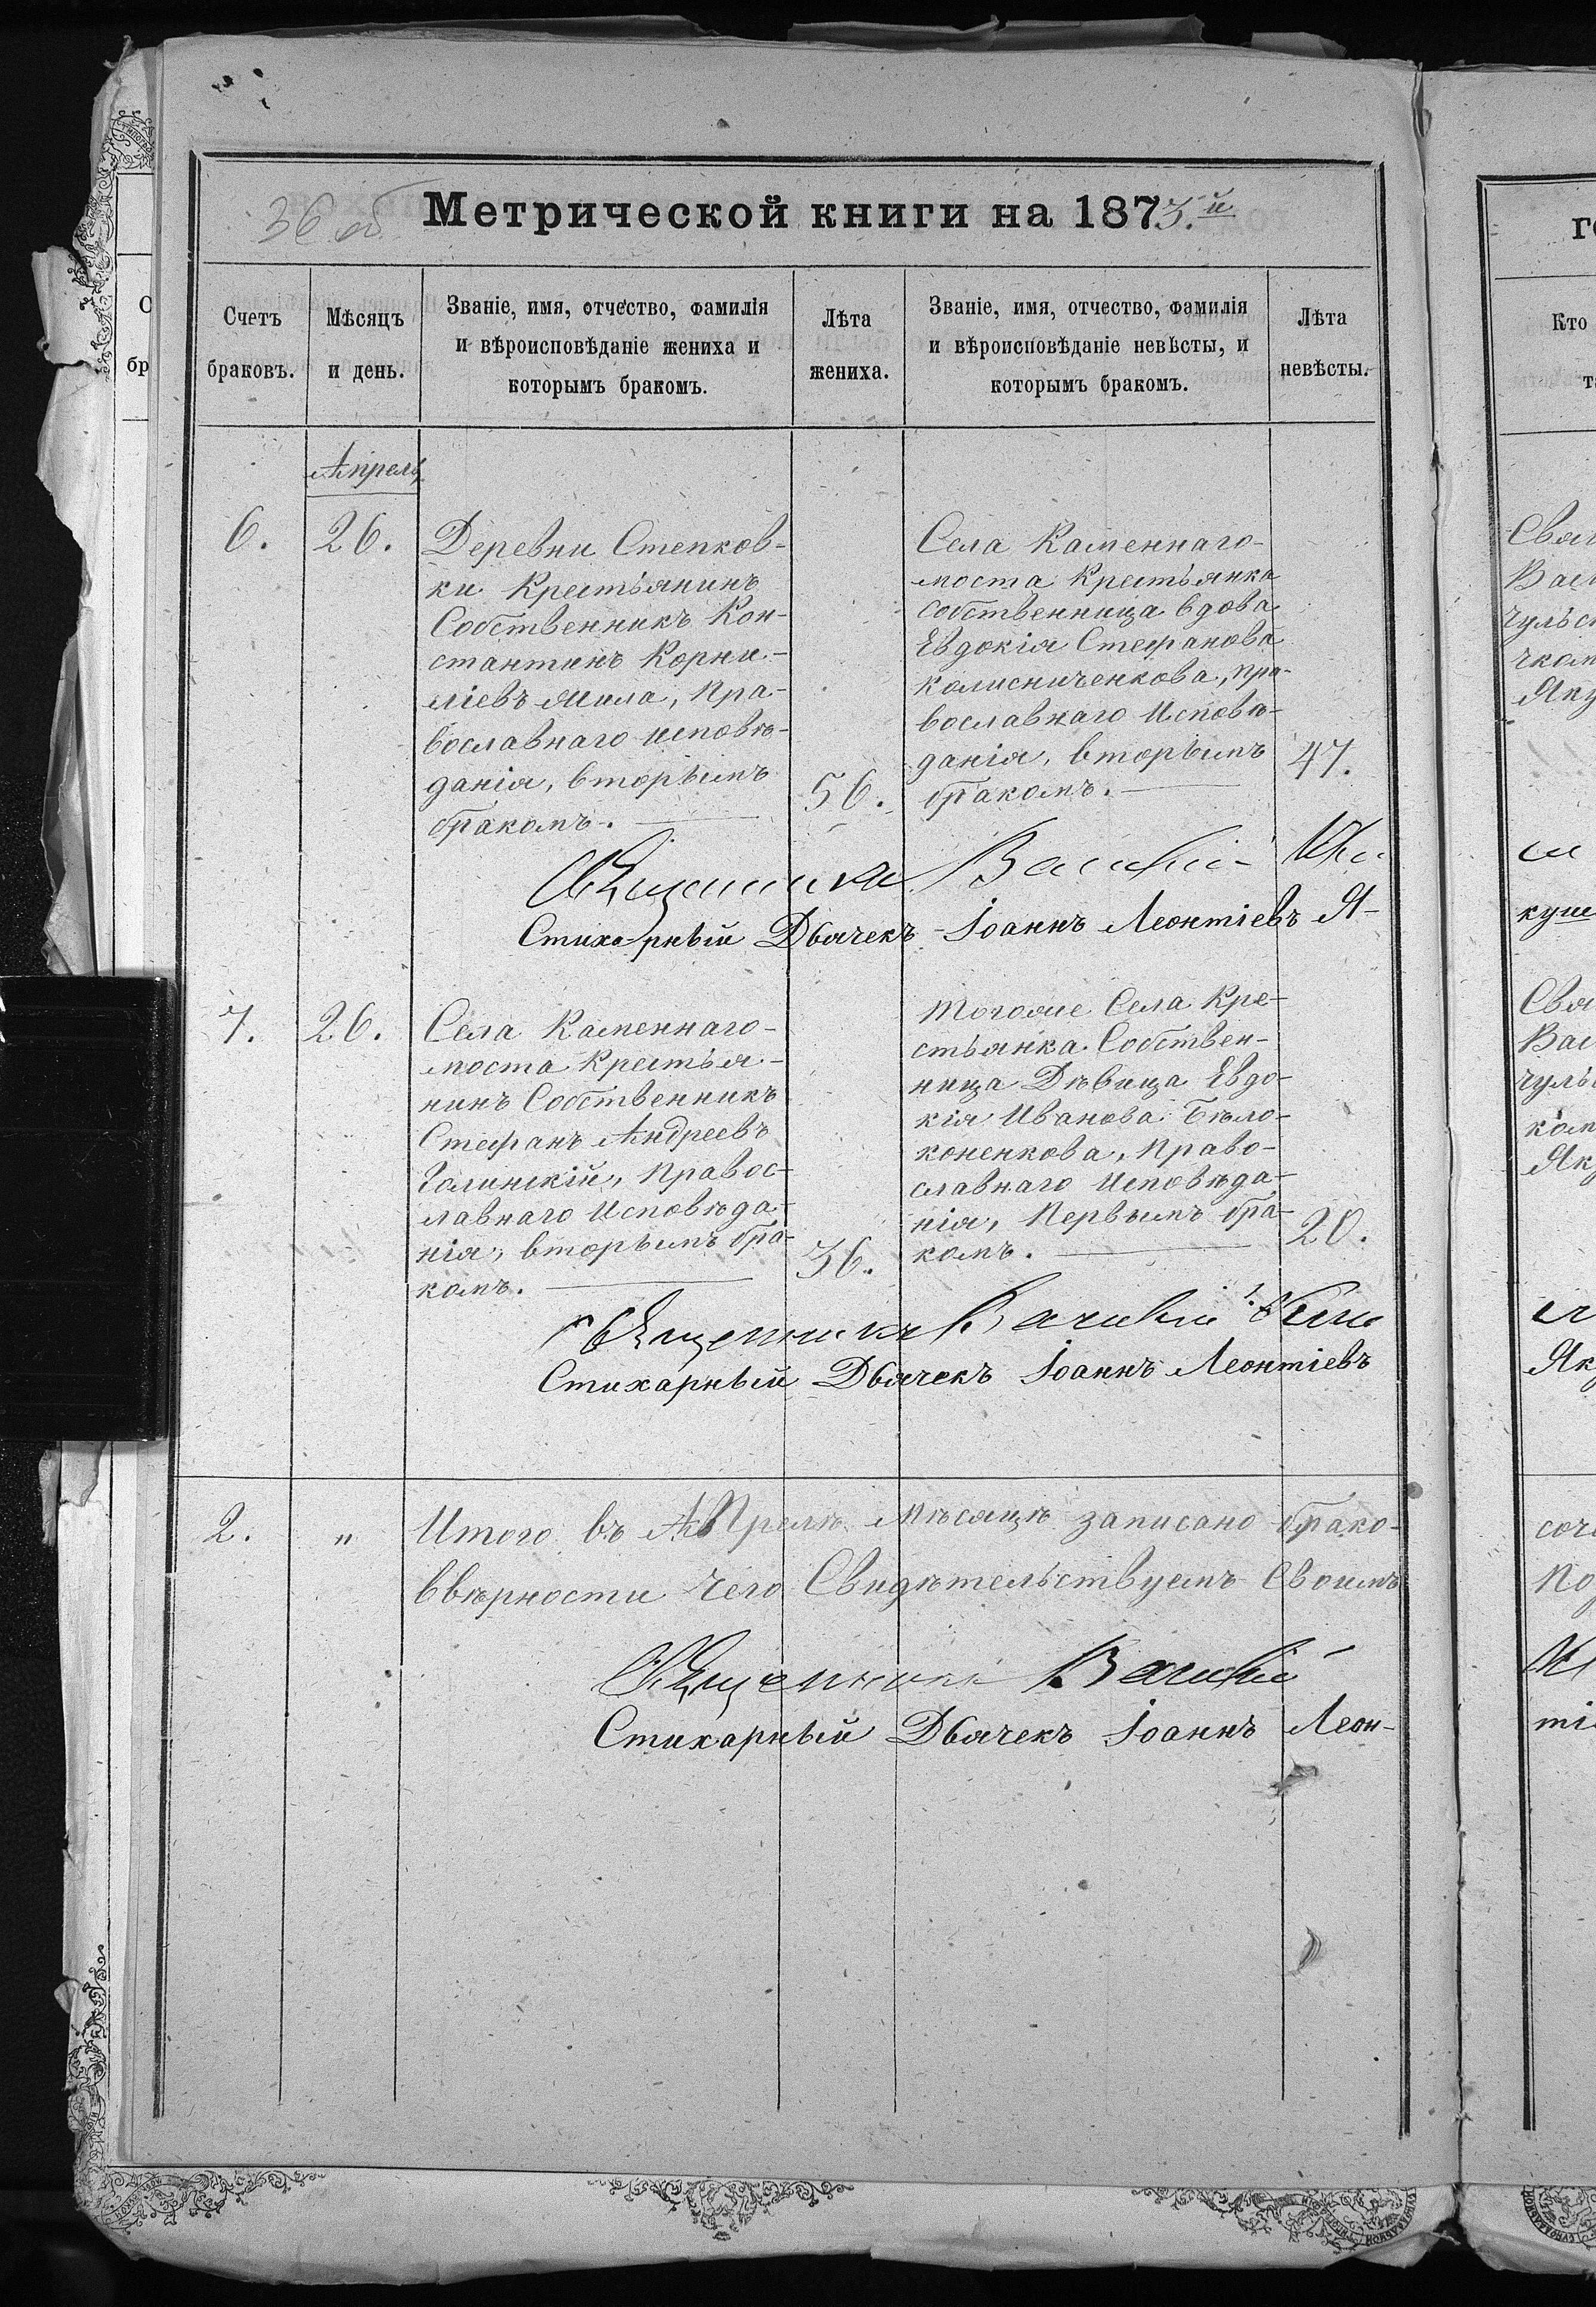 36 об
Метрической книги на 1873.й
Счетъ браковъ.
Мѣсяцъ и день.
Званіе, имя, отчество, фамилія
и вѣроисповѣданіе жениха и
которымъ бракомъ.
Лѣта жениха.
Званіе, имя, отчество, фамилія
и вѣроисповѣданіе невѣсты, и
которымъ бракомъ.
Лѣта невѣсты.
Апрель
6.
26.
Деревни Степков-
ки Крестьянинъ
Собственникъ Кон-
стантинъ Корни-
ліевъ Мила, Пра-
вославнаго исповѣ-
данія, вторымъ
бракомъ.
56.
Села Каменнаго-
моста Крестьянка
собственница вдова
Евдокія Стефанова
Колисниченкова, пра-
вославнаго Исповѣ-
данія, вторымъ
бракомъ.
47.
Священникъ Василій
Стихарный Дьячекъ Іоаннъ Леонтіевъ Я-
7.
26.
Села Каменнаго-
моста Крестья-
нинъ Собственникъ
Стефанъ Андреевъ
Голинскій, Правос-
лавнаго Исповѣда-
нія, вторымъ бра-
комъ.
36.
Тогоже Села Кре-
стьянка Собствен-
ница Дѣвица Евдо-
кія Иванова Бѣло-
коненкова, Право-
славнаго Исповѣда-
нія, Первымъ бра-
комъ.
20.
Священникъ Василій
Стихарный Дьячекъ Іоаннъ Леонтіевъ
2.
"
Итого въ Апрелѣ Мѣсяцѣ записано брако-
ввѣрности чего Свидѣтельствуемъ Своимъ
Священникъ Василій
Стихарный Дьячекъ Іоаннъ Леон-